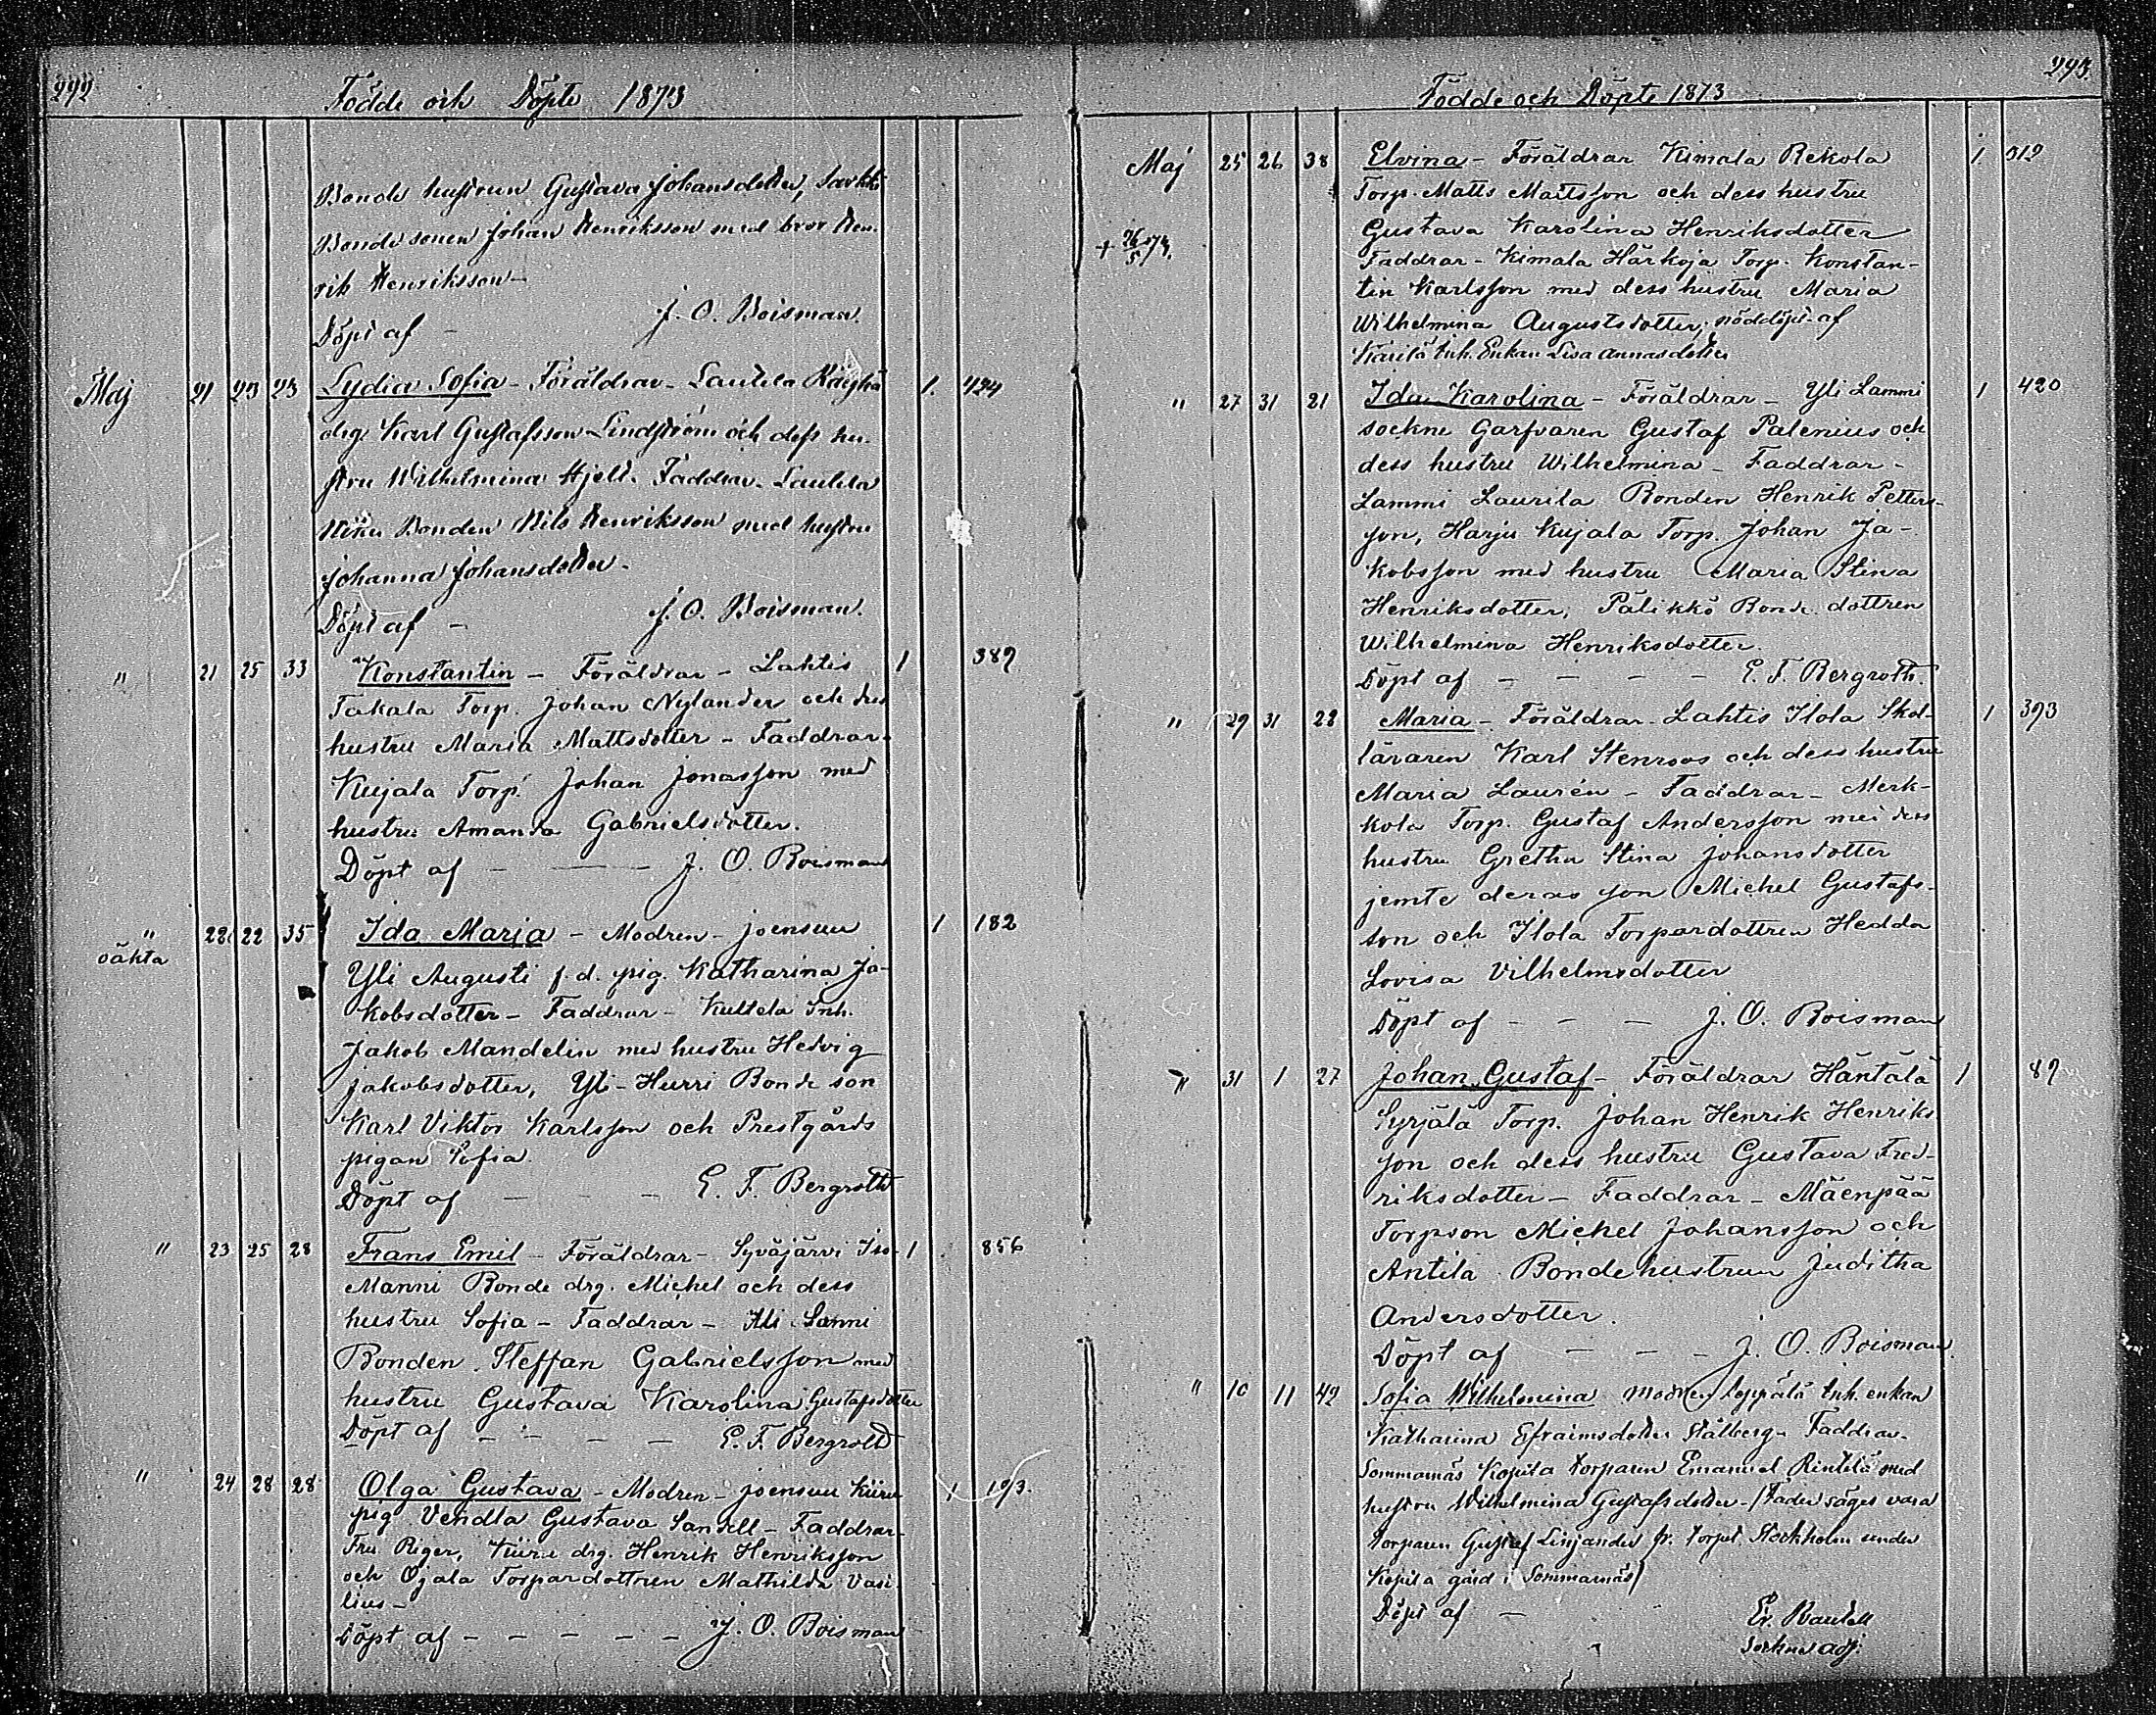 292
Födde och Döpte 1873
Bonde hustrun Gustava Johansdotter,
Bondesonen Johan Henriksson med bror Hen-
rik Henriksson
Döpt af – J. O. Boisman.
Maj 21 23 23 Lydia Sofia – Föräldrar – Laulela 1. 424
drg Karl Gustafsson Lindström och dess hu-
stru Wilhelmina Hjelt. Faddrar. Laulela
Bonden Nils Henriksson med hustru
Johanna Johansdotter.
Döpt af – J. O. Boisman.
" 21 25 33 Konstantin – Föräldrar – Lahtis 1 389
Takala Torp. Johan Nylander och dess
hustru Maria Mattsdotter – Faddrar.
Kujala Torp. Johan Jonasson med
hustru Amanda Gabrielsdotter.
Döpt af – — — J. O. Boisman
" oäkta 22 22 35 Ida Maria – Modren – Joensuu 1 182
Yli Augusti f.d. pig. Katharina Ja-
kobsdotter – Faddrar – Kultela Inh.
Jakob Mandelin med hustru Hedvig
Jakobsdotter, Yli-Hurri Bonde son
Karl Viktor Karlsson och Prestgårds
pigan Sofia.
Döpt af – – – E. F. Bergroth
" 23 25 28 Frans Emil – Föräldrar – Syväjärvi Iso- 1 856
Manni Bonde drg. Michel och dess
hustru Sofia – Faddrar – Ali Sanni
Bonden Steffan Gabrielsson med
hustru Gustava Karolina Gustafsdotter
Döpt af – – – – E. F. Bergroth
" 24 28 28 Olga Gustava – Modren – Joensuu Kiiru 1 193.
pig. Vendla Gustava Sandell – Faddrar –
Fru Riger, Kiiru drg. Henrik Henriksson
och Ojala Torpardottren Mathilda Vasi-
lius –
Döpt af – – – – – J. O. Boisman
293.
Födde och Döpte 1873
Maj 25 26 38 Elvina – Föräldrar Kimala Rekola 1 312
Torp. Matts Mattsson och dess hustru
Gustava Karolina Henriksdotter
+ 26/5 74.
Faddrar – Kimala Härkoja Torp. Konstan-
tin Karlsson med dess hustru Maria
Wilhelmina Augustsdotter, nöddöpt af
Inh. Enkan Lisa Annasdotter
" 27 31 21 Ida Karolina – Föräldrar – Yli Lammi 1 420
sockne Garfvaren Gustaf Palenius och
dess hustru Wilhelmina – Faddrar –
Lammi Laurila Bonden Henrik Petters-
son, Harju Kujala Torp. Johan Ja-
kobsson med hustru Maria Stina
Henriksdotter, Pälikkö Bonde dottren
Wilhelmina Henriksdotter.
Döpt af – – – – E. F. Bergroth.
" 29 31 28 Maria – Föräldrar – Lahtis Ilola Skol- 1 393
läraren Karl Stenroos och dess hustru
Maria Laurén – Faddrar – Merk-
kola Torp. Gustaf Andersson med dess
hustru Gretha Stina Johansdotter
jemte deras son Michel Gustafs-
son och Ilola Torpardottren Hedda
Lovisa Vilhelmsdotter
Döpt af – – – J. O. Boisman
" 31 1 27 Johan Gustaf – Föräldrar Häntälä 1 89
Syrjäla Torp. Johan Henrik Henriks
son och dess hustru Gustava Fred-
riksdotter – Faddrar – Mäenpää
Torpson Michel Johansson och
Antila Bondehustrun Juditha
Andersdotter.
Döpt af – – – J. O. Boisman.
" 10 11 42 Sofia Wilhelmina Modren Seppälä Inh. enkan
Katharina Efraimsdotter Stålberg – Faddrar.
Sommarnäs Kopila torparen Emanuel Rintelä med
hustru Wilhelmina Gustafsdotter – (Fader säges vara
torparen Gustaf fr. torpet Stockholm under
Kopila gård i Sommarnäs)
Döpt af –